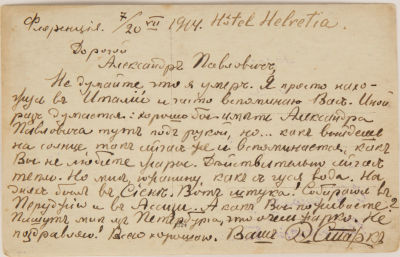 Флоренція. 7/20 VII 1914. Hôtel Helvetia.
Дорогой
Александръ Павловичъ,
Не думайте, что я умеръ. Я просто нахо-
жусь въ Италіи и часто вспоминаю Васъ. Иной
разъ думается: хорошо бы имѣть Александра
Павловича тутъ подъ рукой, но... какъ выйдешь
на солнце такъ сейчасъ же и вспоминается, какъ
Вы не любите жары. Дѣйствительно сейчасъ
тепло. Но мнѣ, южанину, какъ съ гуся вода. На
дняхъ былъ въ Сіенѣ. Вотъ штука! Собираюсь въ
Перуджію и въ Ассизи. А какъ Вы поживаете?
Пишутъ мнѣ изъ Петербурга, что очень жарко. Не
поздравляю! Всего хорошаго. Вашъ